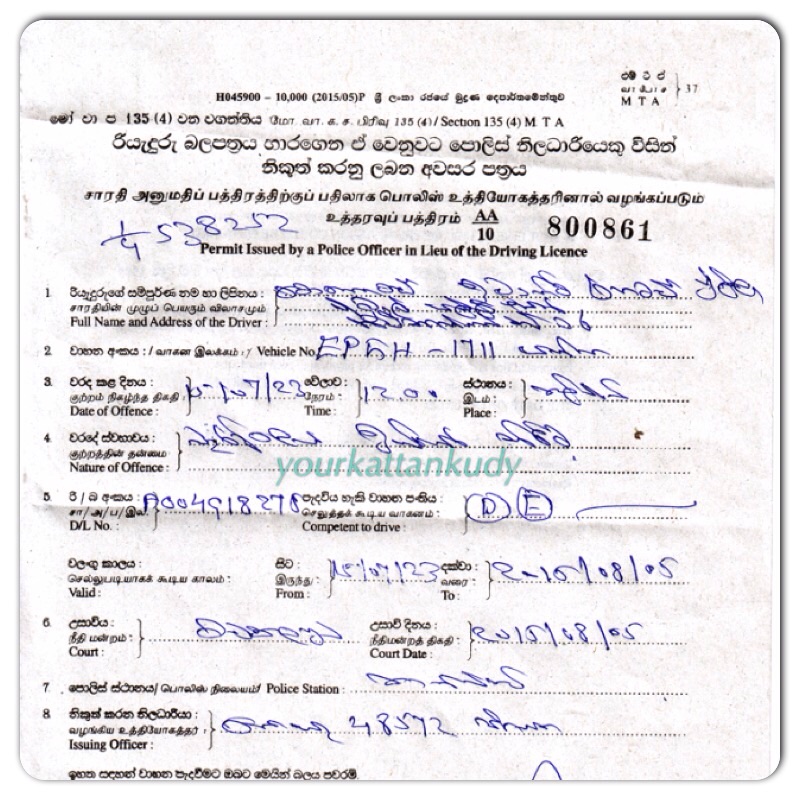 එම් ටී ඒ
வா போ ச } 37
M T A
H045900 – 10,000 (2015/05)P ශ්‍රී ලංකා රජයේ මුද්‍රණ දෙපාර්තමේන්තුව
මෝ වා ප 135 (4) වන වගන්තිය மோ. வா. க. ச. பிரிவு 135 (4) / Section 135 (4) M. T. A
රියැදුරු බලපත්‍රය භාරගෙන ඒ වෙනුවට පොලිස් නිලධාරියෙකු විසින්
නිකුත් කරනු ලබන අවසර පත්‍රය
சாரதி அனுமதிப் பத்திரத்திற்குப் பதிலாக பொலிஸ் உத்தியோகத்தரினால் வழங்கப்படும்
உத்தரவுப் பத்திரம் AA/10 800861
538252
Permit Issued by a Police Officer in Lieu of the Driving Licence
1. රියැදුරුගේ සම්පූර්ණ නම හා ලිපිනය :
சாரதியின் முழுப் பெயரும் விலாசமும் :
Full Name and Address of the Driver :
2. වාහන අංකය : / வாகன இலக்கம் : / Vehicle No. EPGH – 1711
3. වරද කළ දිනය : වේලාව : ස්ථානය :
குற்றம் நிகழ்ந்த திகதி 15/07/23 நேரம் : 12.00 இடம் :
Date of Offence : Time : Place :
4. වරදේ ස්වභාවය :
குற்றத்தின் தன்மை
Nature of Offence :
yourkattankudy
5. රි / බ අංකය : පැදවිය හැකි වාහන පංතිය :
சா/அ/ப/இல. A004918278 செலுத்தக் கூடிய வாகனம் : D E
D/L No. : Competent to drive :
වලංගු කාලය : සිට : දක්වා :
செல்லுபடியாகக் கூடிய காலம் : இருந்து : 15/07/23 வரை : 2015/08/05
Valid : From : To :
6. උසාවිය : උසාවි දිනය :
நீதி மன்றம் : நீதிமன்றத் திகதி : 2015/08/05
Court : Court Date :
7. පොලිස් ස්ථානය/ பொலிஸ் நிலையம்/ Police Station :
8. නිකුත් කරන නිලධාරියා :
வழங்கிய உத்தியோகத்தர் : 48572
Issuing Officer :
ඉහත සඳහන් වාහන පැදවීමට ඔබට මෙයින් බලය පවරමි.